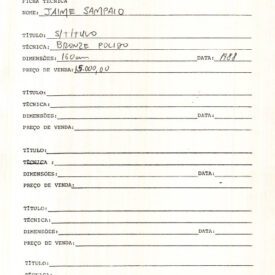 FICHA TÉCNICA
NOME: JAIME SAMPAIO
TÍTULO: S/TÍTULO
TÉCNICA: BRONZE POLIDO
DIMENSÕES: 160cm DATA: 1988
PREÇO DE VENDA: 15.000,00
TÍTULO:
TÉCNICA:
DIMENSÕES: DATA:
PREÇO DE VENDA:
TÍTULO:
TÉCNICA :
DIMENSOES: DATA:
PREÇO DE VENDA:
TÍTULO:
TÉCNICA:
DIMENSÕES: DATA:
PREÇO DE VENDA:
TÍTULO:
TÉCNICA: